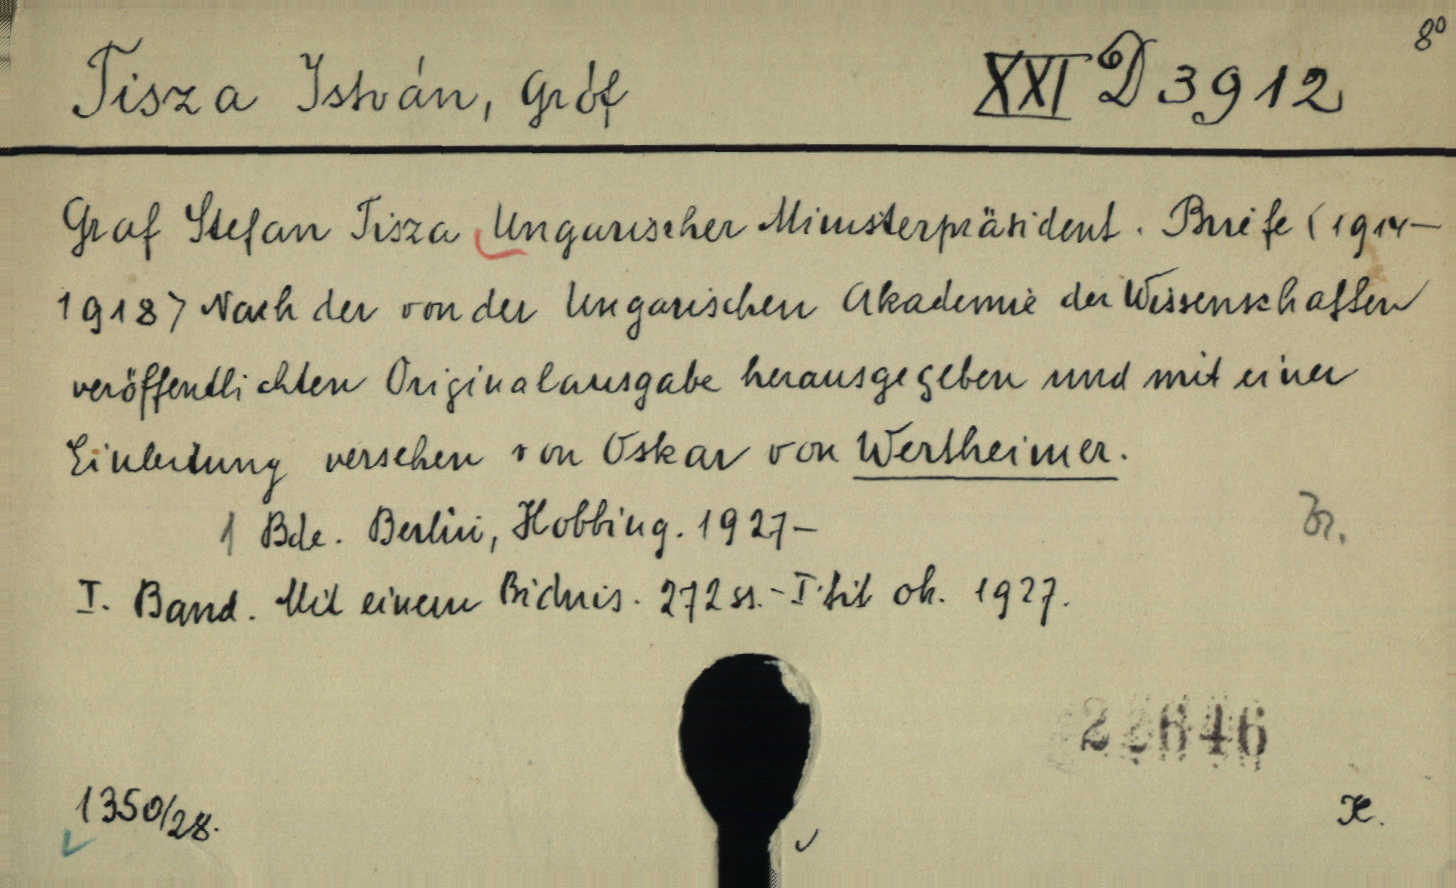 8⁰
Tisza István, Gróf XXI D 3912
Graf Stefan Tisza Ungarischer Ministerpräsident. Briefe (1914-
1918) Nach der von der Ungarischen Akademie der Wissenschaften
veröffentlichten Originalausgabe herausgegeben und mit einer
Einleitung versehen von Oskar von Wertheimer.
1 Bde. Berlin, Hobbing. 1927-
I. Band. Mit einem Bidnis. 272 ss. - I. tit ok. 1927.
22646
1350/28.
K.